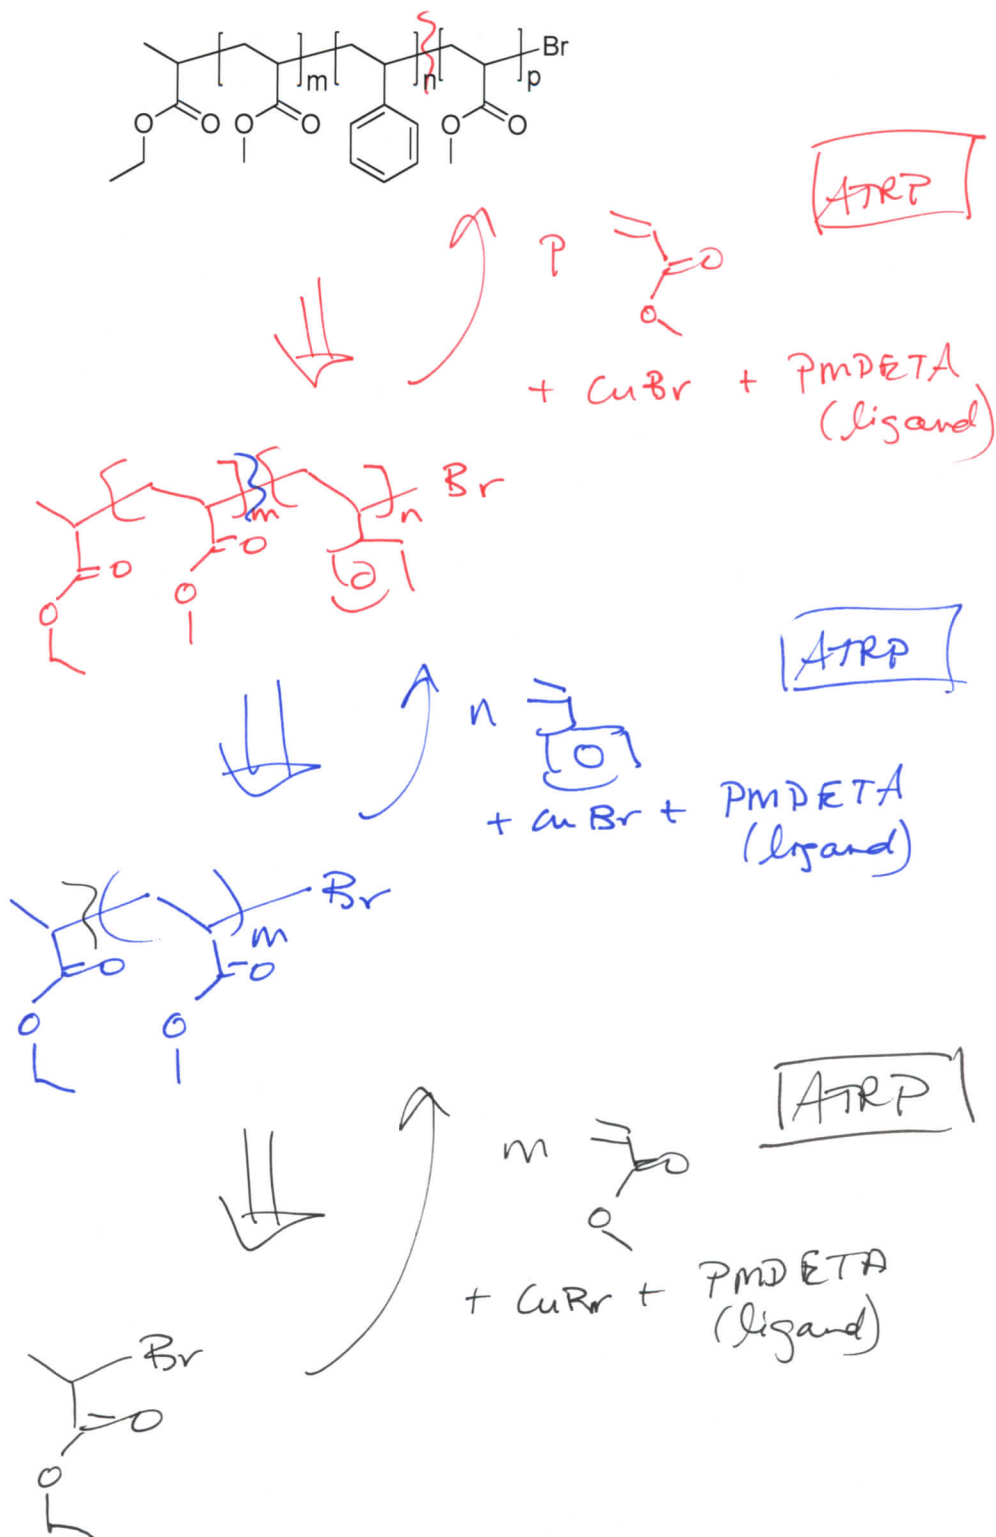 Br
m n p
O O O O O O
ATRP
p O
O
+ CuBr + PMDETA
(ligand)
Br
m n
O O
O O
ATRP
n
+ CuBr + PMDETA
(ligand)
Br
m
O O
O O
ATRP
m O
O
+ CuBr + PMDETA
(ligand)
Br
O
O